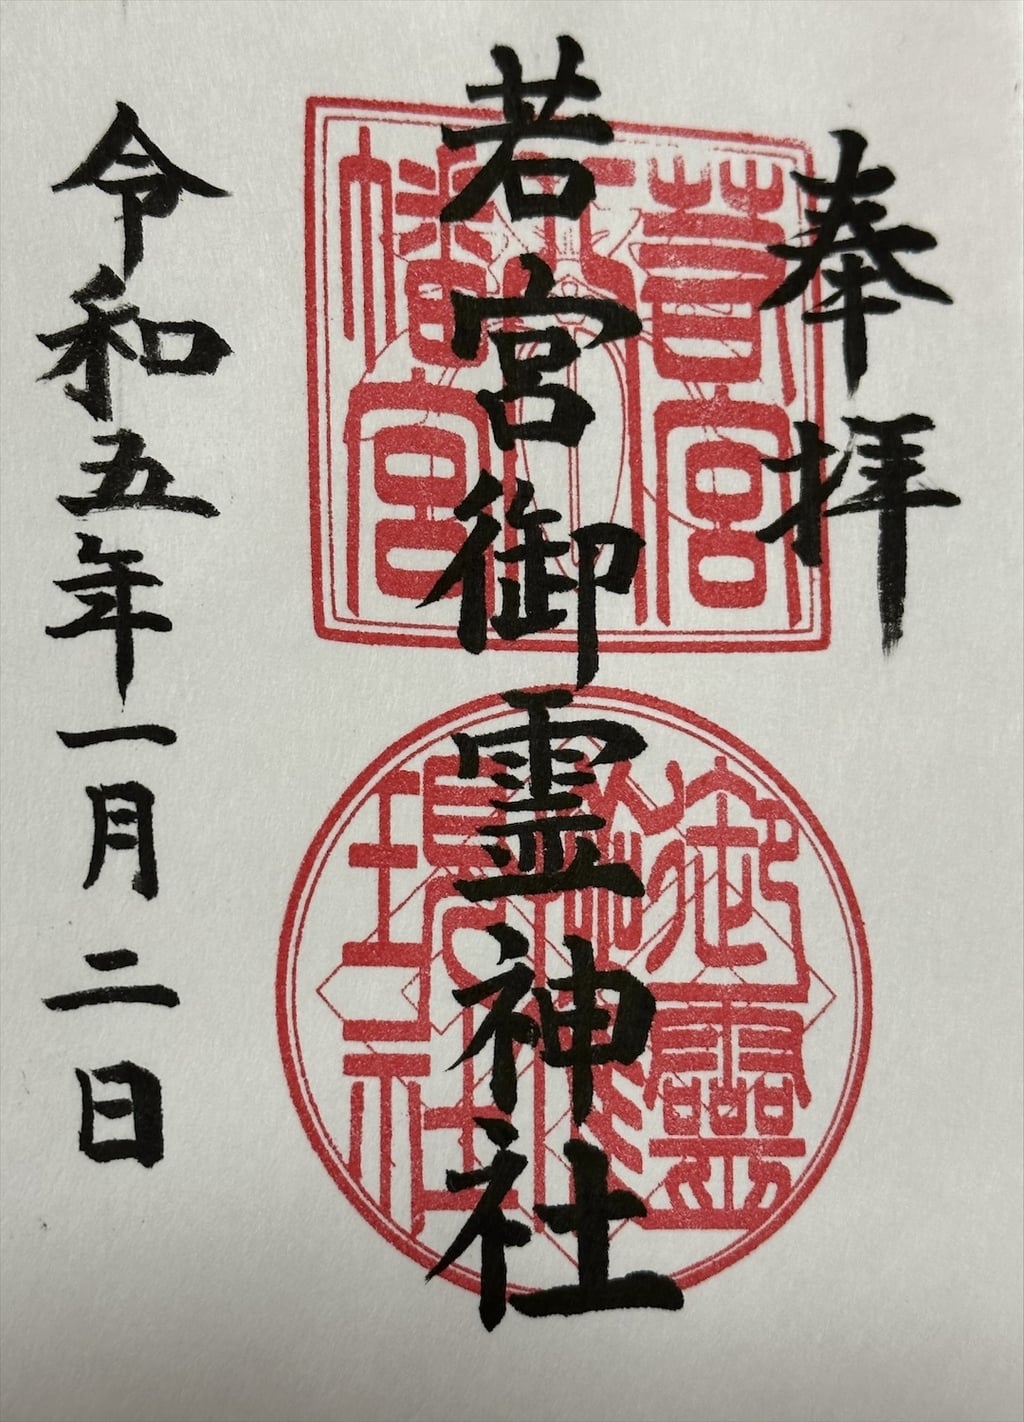 奉拝
若宮御霊神社
令和五年一月二日
若宮
幡宮
御靈
社